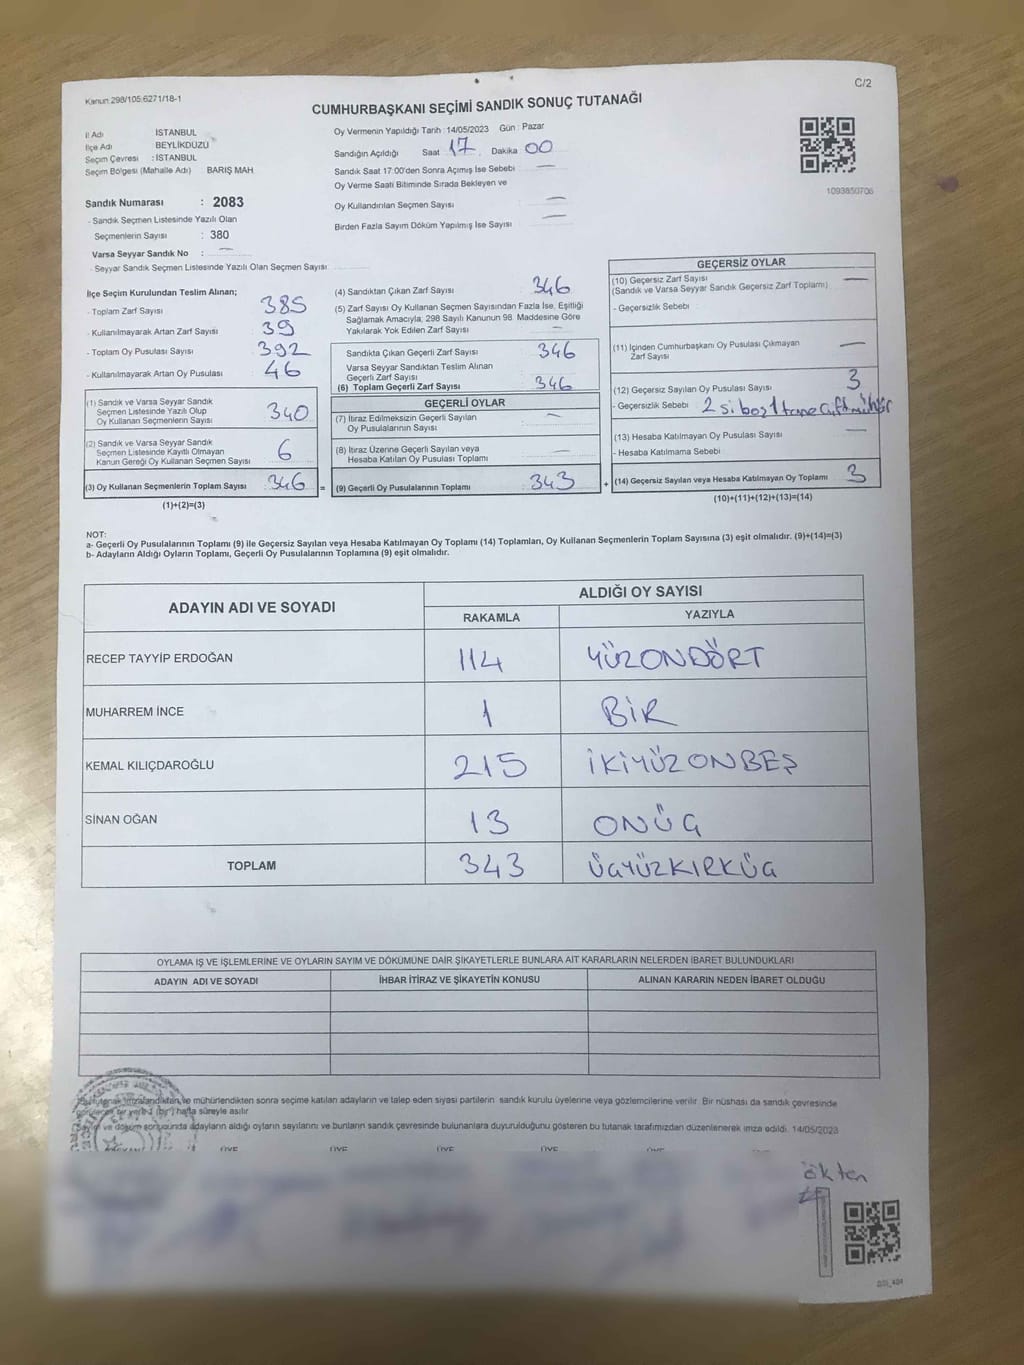 Kanun:298/105:6271/18-1
C/2
CUMHURBAŞKANI SEÇİMİ SANDIK SONUÇ TUTANAĞI
İl Adı İSTANBUL
İlçe Adı BEYLİKDÜZÜ
Seçim Çevresi : İSTANBUL
Seçim Bölgesi (Mahalle Adı) BARIŞ MAH
Sandık Numarası : 2083
- Sandık Seçmen Listesinde Yazılı Olan
Seçmenlerin Sayısı : 380
Varsa Seyyar Sandık No : —
- Seyyar Sandık Seçmen Listesinde Yazılı Olan Seçmen Sayısı
Oy Vermenin Yapıldığı Tarih : 14/05/2023 Gün : Pazar
Sandığın Açıldığı Saat 17 Dakika 00
Sandık Saat 17:00'den Sonra Açımış İse Sebebi —
Oy Verme Saati Bitiminde Sırada Bekleyen ve
Oy Kullandırılan Seçmen Sayısı —
Birden Fazla Sayım Döküm Yapılmış İse Sayısı —
1093850706
İlçe Seçim Kurulundan Teslim Alınan;
- Toplam Zarf Sayısı 385
- Kullanılmayarak Artan Zarf Sayısı 39
- Toplam Oy Pusulası Sayısı 392
- Kullanılmayarak Artan Oy Pusulası 46
(1) Sandık ve Varsa Seyyar Sandık
Seçmen Listesinde Yazılı Olup
Oy Kullanan Seçmenlerin Sayısı 340
(2) Sandık ve Varsa Seyyar Sandık
Seçmen Listesinde Kayıtlı Olmayan
Kanun Gereği Oy Kullanan Seçmen Sayısı 6
(3) Oy Kullanan Seçmenlerin Toplam Sayısı 346 =
(1)+(2)=(3)
(4) Sandıktan Çıkan Zarf Sayısı 346
(5) Zarf Sayısı Oy Kullanan Seçmen Sayısından Fazla İse, Eşitliği
Sağlamak Amacıyla, 298 Sayılı Kanunun 98. Maddesine Göre
Yakılarak Yok Edilen Zarf Sayısı —
Sandıkta Çıkan Geçerli Zarf Sayısı 346
Varsa Seyyar Sandıktan Teslim Alınan
Geçerli Zarf Sayısı
(6) Toplam Geçerli Zarf Sayısı 346
GEÇERLİ OYLAR
(7) İtiraz Edilmeksizin Geçerli Sayılan
Oy Pusulalarının Sayısı —
(8) İtiraz Üzerine Geçerli Sayılan veya
Hesaba Katılan Oy Pusulası Toplamı —
(9) Geçerli Oy Pusulalarının Toplamı : 343 +
GEÇERSİZ OYLAR
(10) Geçersiz Zarf Sayısı —
(Sandık ve Varsa Seyyar Sandık Geçersiz Zarf Toplamı)
- Geçersizlik Sebebi
(11) İçinden Cumhurbaşkanı Oy Pusulası Çıkmayan
Zarf Sayısı —
(12) Geçersiz Sayılan Oy Pusulası Sayısı 3
- Geçersizlik Sebebi 2 si boş 1 tane çift mühür
(13) Hesaba Katılmayan Oy Pusulası Sayısı —
- Hesaba Katılmama Sebebi
(14) Geçersiz Sayılan veya Hesaba Katılmayan Oy Toplamı 3
(10)+(11)+(12)+(13)=(14)
NOT:
a- Geçerli Oy Pusulalarının Toplamı (9) ile Geçersiz Sayılan veya Hesaba Katılmayan Oy Toplamı (14) Toplamları, Oy Kullanan Seçmenlerin Toplam Sayısına (3) eşit olmalıdır. (9)+(14)=(3)
b- Adayların Aldığı Oyların Toplamı, Geçerli Oy Pusulalarının Toplamına (9) eşit olmalıdır.
ADAYIN ADI VE SOYADI ALDIĞI OY SAYISI
RAKAMLA YAZIYLA
RECEP TAYYİP ERDOĞAN 114 YÜZONDÖRT
MUHARREM İNCE 1 BİR
KEMAL KILIÇDAROĞLU 215 İKİYÜZONBEŞ
SİNAN OĞAN 13 ONÜÇ
TOPLAM 343 ÜÇYÜZKIRKÜÇ
OYLAMA İŞ VE İŞLEMLERİNE VE OYLARIN SAYIM VE DÖKÜMÜNE DAİR ŞİKAYETLERLE BUNLARA AİT KARARLARIN NELERDEN İBARET BULUNDUKLARI
ADAYIN ADI VE SOYADI İHBAR İTİRAZ VE ŞİKAYETİN KONUSU ALINAN KARARIN NEDEN İBARET OLDUĞU
tutanak imzalandıktan ve mühürlendikten sonra seçime katılan adayların ve talep eden siyasi partilerin sandık kurulu üyelerine veya gözlemcilerine verilir. Bir nüshası da sandık çevresinde
görülecek bir yere 1 (bir) hafta süreyle asılır.
Sayım ve döküm sonucunda adayların aldığı oyların sayılarını ve bunların sandık çevresinde bulunanlara duyurulduğunu gösteren bu tutanak tarafımızdan düzenlenerek imza edildi. 14/05/2023
ÜYE ÜYE ÜYE ÜYE ÜYE
ökten